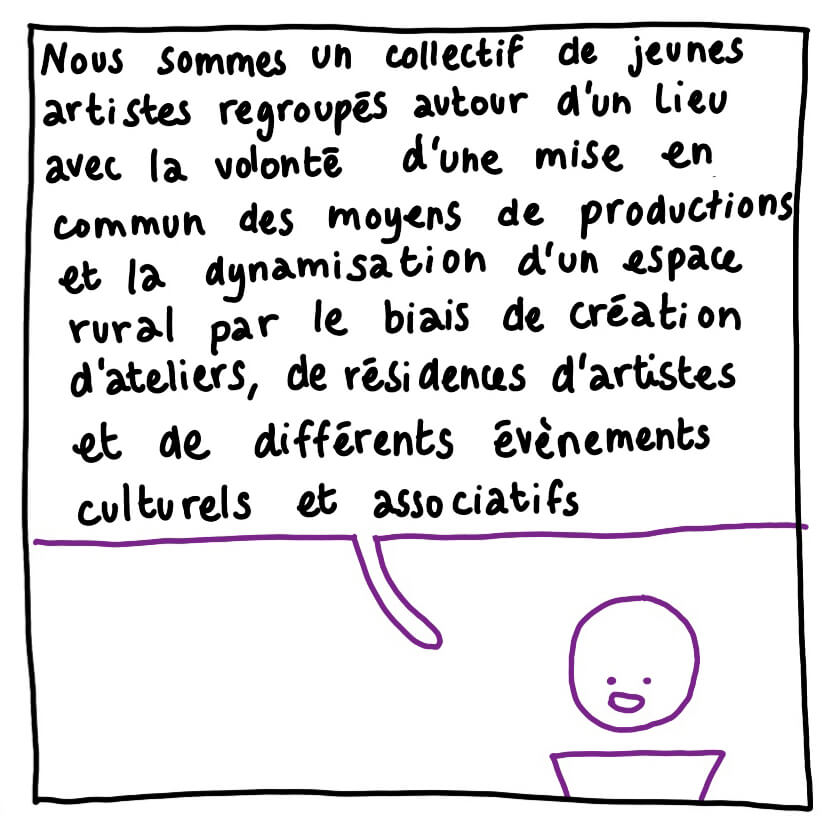 Nous sommes un collectif de jeunes
artistes regroupés autour d'un lieu
avec la volonté d'une mise en
commun des moyens de productions
et la dynamisation d'un espace
rural par le biais de création
d'ateliers, de résidences d'artistes
et de différents évènements
culturels et associatifs